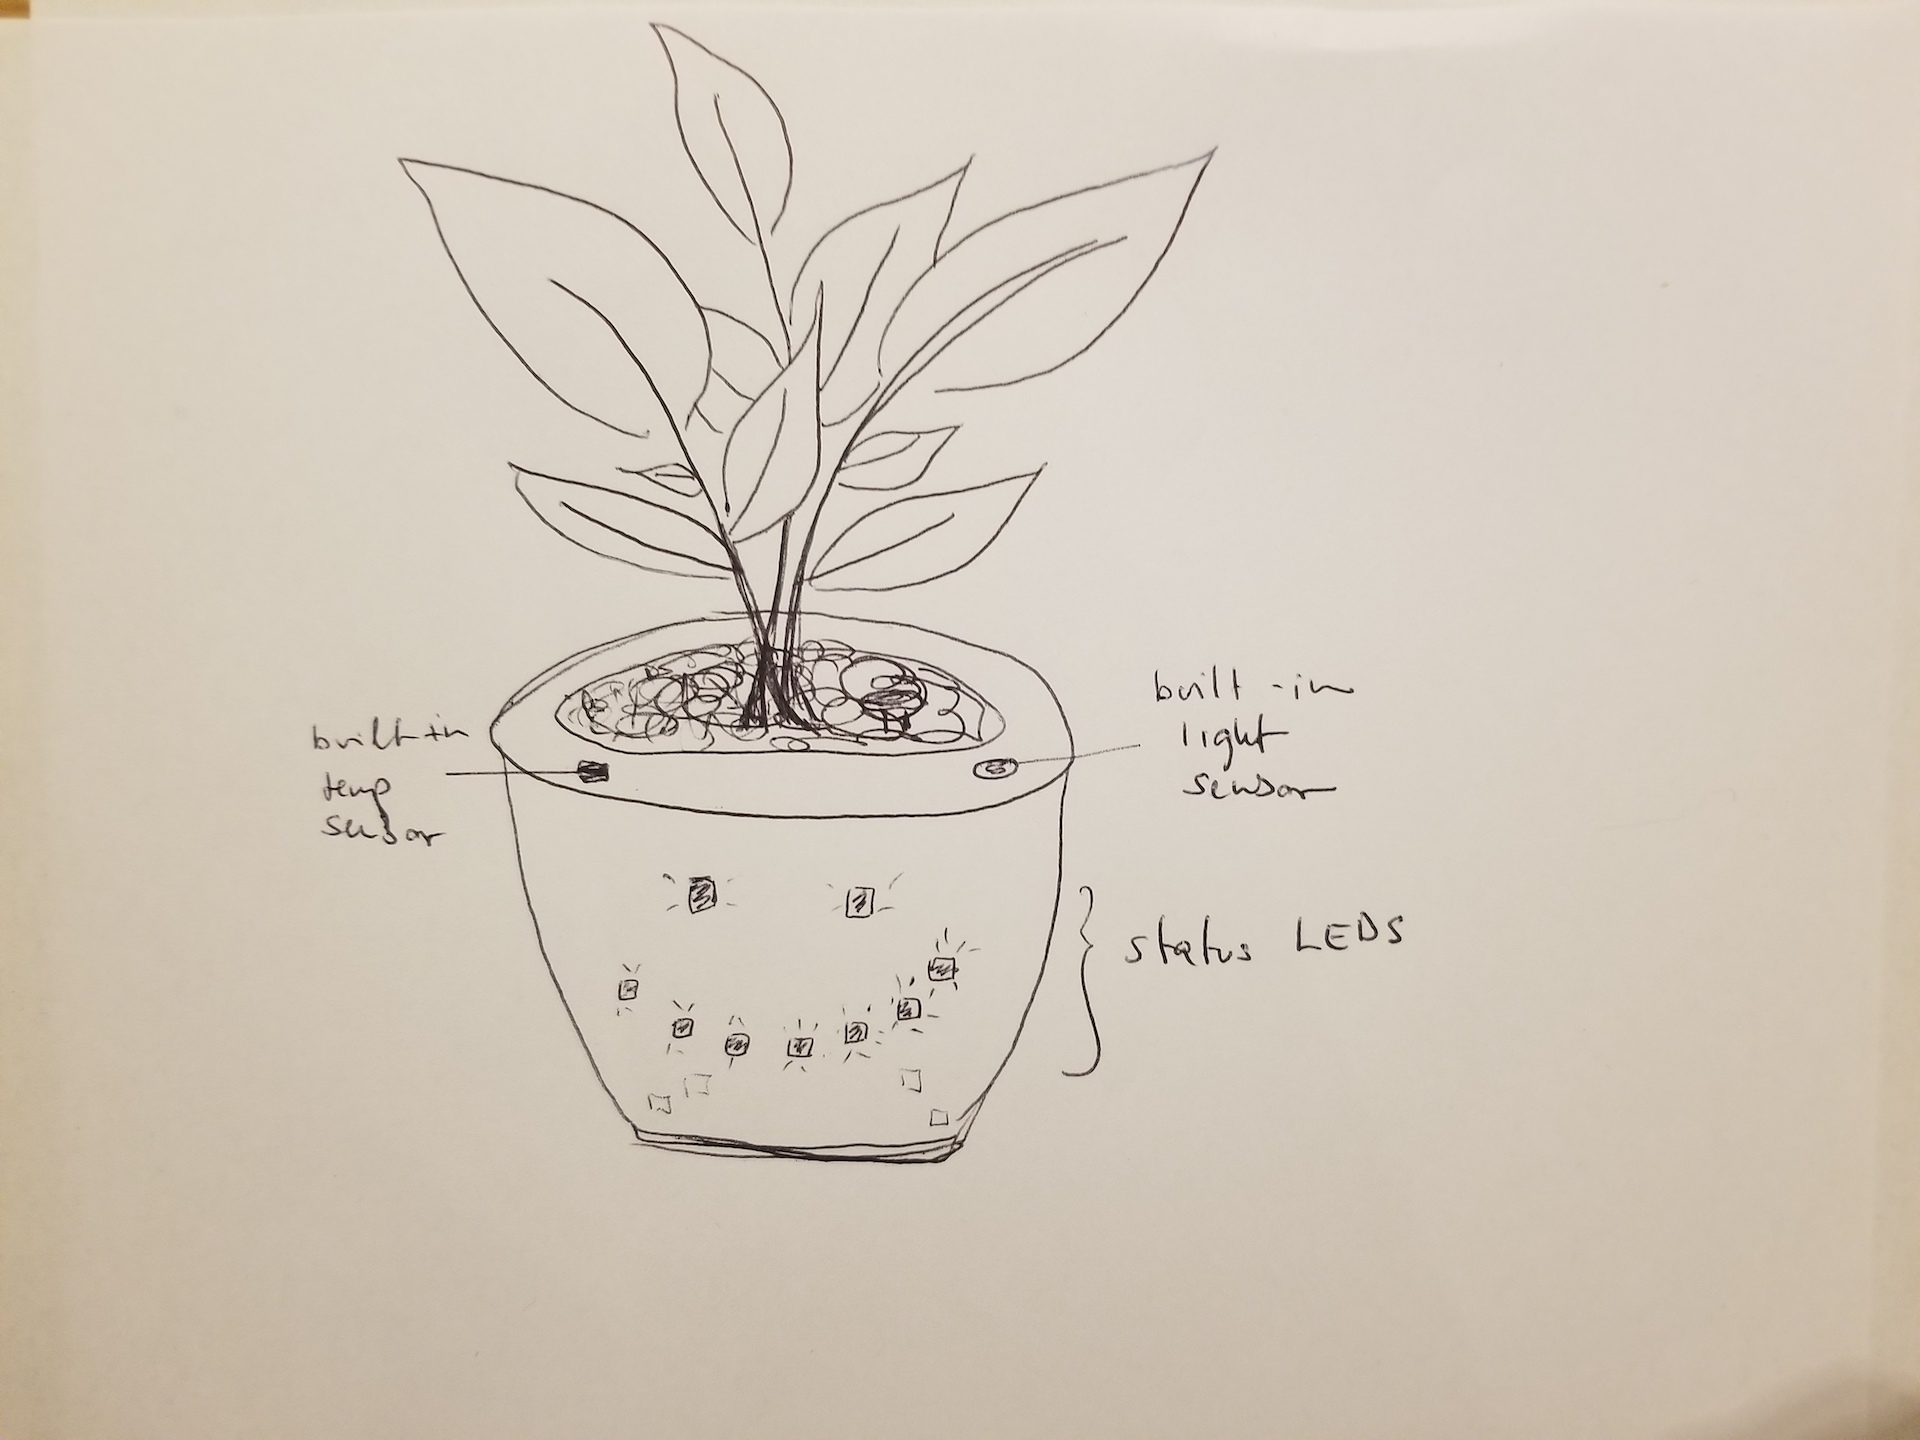 built-in
temp
sensor
built-in
light
sensor
status LEDS